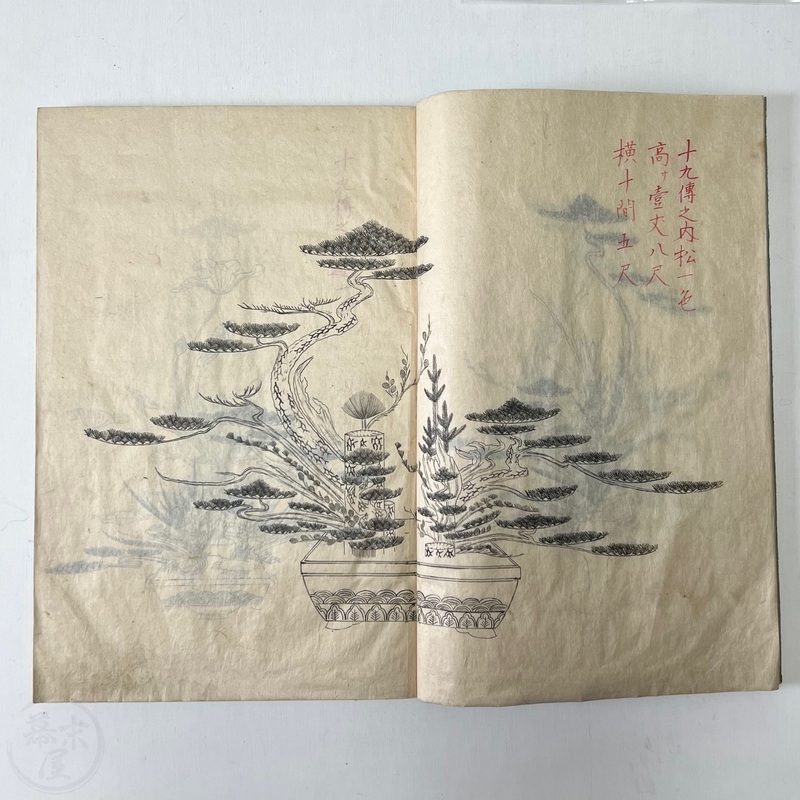 十九傳之内松一色
高サ壹丈八尺
横十間五尺
幕末屋